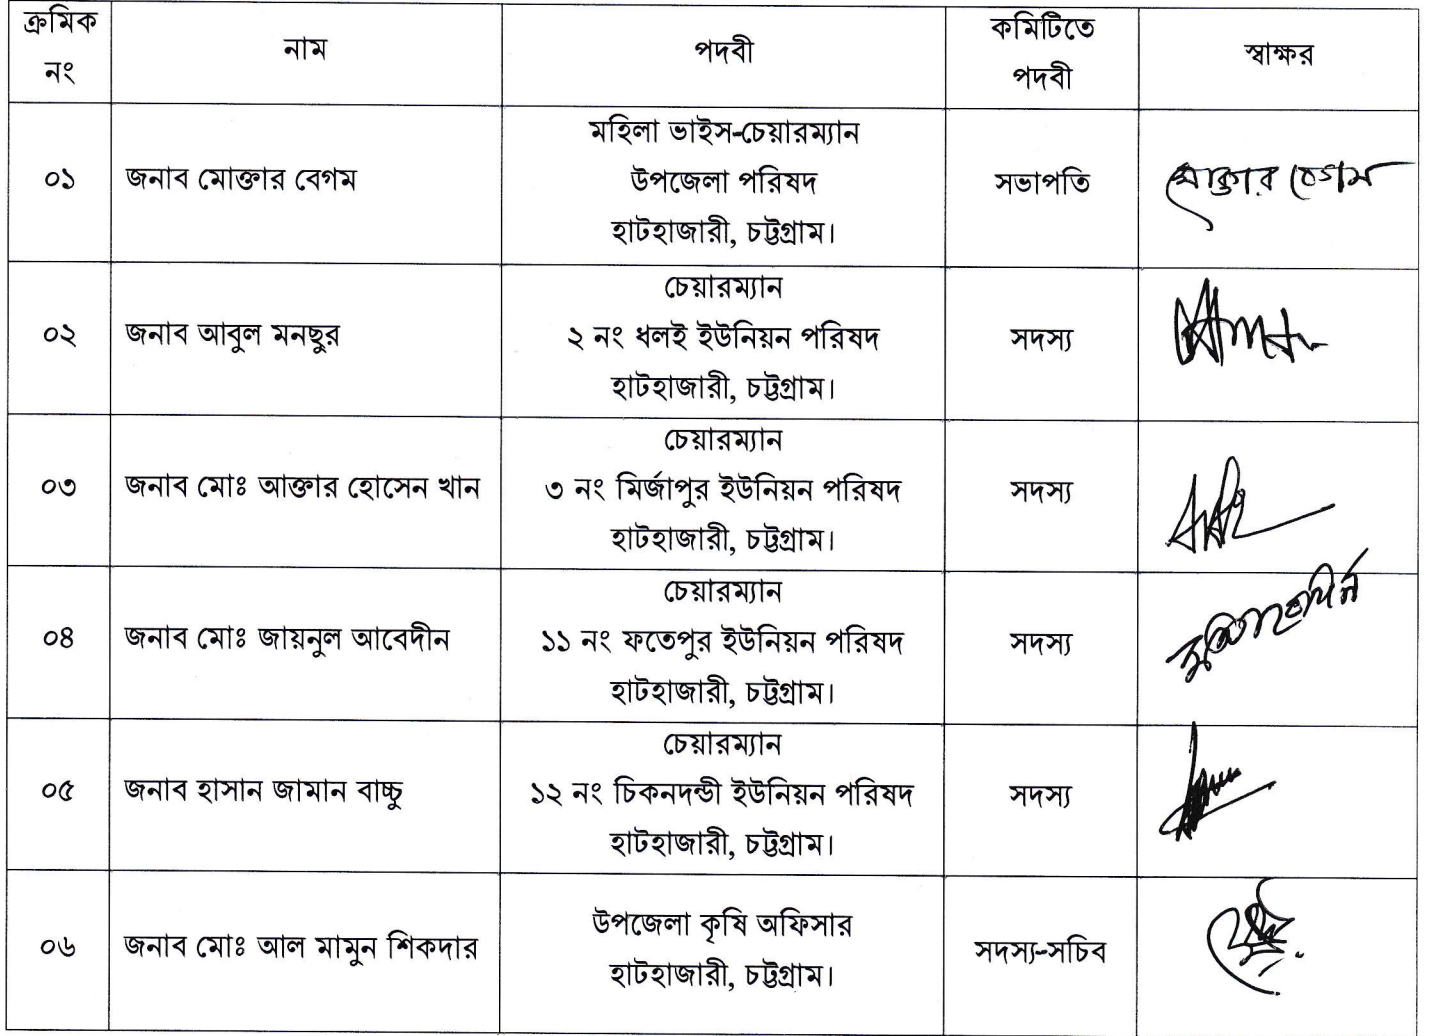 ক্রমিক নং | নাম | পদবী | কমিটিতে পদবী | স্বাক্ষর
০১ | জনাব মোক্তার বেগম | মহিলা ভাইস-চেয়ারম্যান
উপজেলা পরিষদ
হাটহাজারী, চট্টগ্রাম। | সভাপতি | মোক্তার বেগম
০২ | জনাব আবুল মনছুর | চেয়ারম্যান
২ নং ধলই ইউনিয়ন পরিষদ
হাটহাজারী, চট্টগ্রাম। | সদস্য
০৩ | জনাব মোঃ আক্তার হোসেন খান | চেয়ারম্যান
৩ নং মির্জাপুর ইউনিয়ন পরিষদ
হাটহাজারী, চট্টগ্রাম। | সদস্য
০৪ | জনাব মোঃ জায়নুল আবেদীন | চেয়ারম্যান
১১ নং ফতেপুর ইউনিয়ন পরিষদ
হাটহাজারী, চট্টগ্রাম। | সদস্য
০৫ | জনাব হাসান জামান বাচ্চু | চেয়ারম্যান
১২ নং চিকনদন্ডী ইউনিয়ন পরিষদ
হাটহাজারী, চট্টগ্রাম। | সদস্য
০৬ | জনাব মোঃ আল মামুন শিকদার | উপজেলা কৃষি অফিসার
হাটহাজারী, চট্টগ্রাম। | সদস্য-সচিব